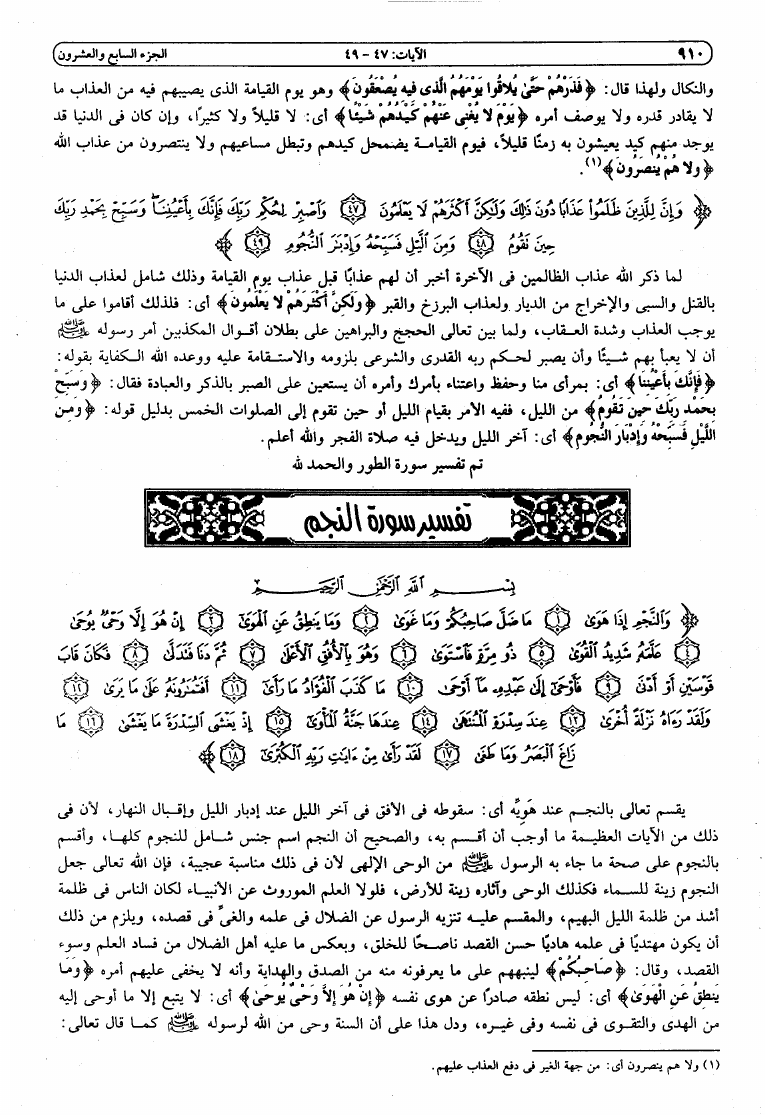 ٩١٠ الآيات: ٤٧ - ٤٩ الجزء السابع والعشرون
والنكال ولهذا قال: ﴿فَذَرْهُمْ حَتَّىٰ يُلاقُوا يَوْمَهُمُ الَّذِي فِيهِ يُصْعَقُونَ﴾ وهو يوم القيامة الذى يصيبهم فيه من العذاب ما
لا يقادر قدره ولا يوصف أمره ﴿يَوْمَ لا يُغْنِي عَنْهُمْ كَيْدُهُمْ شَيْئًا﴾ أى: لا قليلاً ولا كثيرًا، وإن كان فى الدنيا قد
يوجد منهم كيد يعيشون به زمنًا قليلاً، فيوم القيامـة يضمحل كيدهم وتبطل مساعيهم ولا ينتصرون من عذاب الله
﴿وَلا هُمْ يُنصَرُونَ﴾(١).
﴿ وَإِنَّ لِلَّذِينَ ظَلَمُوا۟ عَذَابًا دُونَ ذَٰلِكَ وَلَٰكِنَّ أَكْثَرَهُمْ لَا يَعْلَمُونَ ٤٧ وَٱصْبِرْ لِحُكْمِ رَبِّكَ فَإِنَّكَ بِأَعْيُنِنَا ۖ وَسَبِّحْ بِحَمْدِ رَبِّكَ
حِينَ تَقُومُ ٤٨ وَمِنَ ٱلَّيْلِ فَسَبِّحْهُ وَإِدْبَٰرَ ٱلنُّجُومِ ٤٩ ﴾
لما ذكر الله عذاب الظالمين فى الآخرة أخبر أن لهم عذابًا قبل عذاب يوم القيامة وذلك شامل لعذاب الدنيا
بالقتل والسبى والإخراج من الديار ولعذاب البرزخ والقبر ﴿وَلَكِنَّ أَكْثَرَهُمْ لا يَعْلَمُونَ﴾ أى: فلذلك أقاموا على ما
يوجب العذاب وشدة العـقاب، ولما بين تعالى الحجج والبراهين على بطلان أقـوال المكذبين أمر رسوله ﷺ
أن لا يعبأ بهم شـيئًا وأن يصبر لحـكم ربه القدرى والشرعى بلزومه والاسـتـقامة عليه ووعده الله الـكفاية بقوله:
﴿فَإِنَّكَ بِأَعْيُنِنَا﴾ أى: بمرأى منا وحفظ واعتناء بأمرك وأمره أن يستعين على الصبر بالذكر والعبادة فقال: ﴿وَسَبِّحْ
بِحَمْدِ رَبِّكَ حِينَ تَقُومُ﴾ من الليل، ففيه الأمر بقيام الليل أو حين تقوم إلى الصلوات الخمس بدليل قوله: ﴿وَمِنَ
اللَّيْلِ فَسَبِّحْهُ وَإِدْبَارَ النُّجُومِ﴾ أى: آخر الليل ويدخل فيه صلاة الفجر والله أعلم.
تم تفسير سورة الطور والحمد لله
تفسير سورة النجم
بِسْمِ ٱللَّهِ ٱلرَّحْمَٰنِ ٱلرَّحِيمِ
﴿ وَٱلنَّجْمِ إِذَا هَوَىٰ ١ مَا ضَلَّ صَاحِبُكُمْ وَمَا غَوَىٰ ٢ وَمَا يَنطِقُ عَنِ ٱلْهَوَىٰٓ ٣ إِنْ هُوَ إِلَّا وَحْىٌ يُوحَىٰ
٤ عَلَّمَهُۥ شَدِيدُ ٱلْقُوَىٰ ٥ ذُو مِرَّةٍ فَٱسْتَوَىٰ ٦ وَهُوَ بِٱلْأُفُقِ ٱلْأَعْلَىٰ ٧ ثُمَّ دَنَا فَتَدَلَّىٰ ٨ فَكَانَ قَابَ
قَوْسَيْنِ أَوْ أَدْنَىٰ ٩ فَأَوْحَىٰٓ إِلَىٰ عَبْدِهِۦ مَآ أَوْحَىٰ ١٠ مَا كَذَبَ ٱلْفُؤَادُ مَا رَأَىٰٓ ١١ أَفَتُمَٰرُونَهُۥ عَلَىٰ مَا يَرَىٰ ١٢
وَلَقَدْ رَءَاهُ نَزْلَةً أُخْرَىٰ ١٣ عِندَ سِدْرَةِ ٱلْمُنتَهَىٰ ١٤ عِندَهَا جَنَّةُ ٱلْمَأْوَىٰٓ ١٥ إِذْ يَغْشَى ٱلسِّدْرَةَ مَا يَغْشَىٰ ١٦ مَا
زَاغَ ٱلْبَصَرُ وَمَا طَغَىٰ ١٧ لَقَدْ رَأَىٰ مِنْ ءَايَٰتِ رَبِّهِ ٱلْكُبْرَىٰٓ ١٨ ﴾
يقسم تعالى بالنجـم عند هَوِيِّه أى: سقوطه فى الأفق فى آخر الليل عند إدبار الليل وإقـبال النهار، لأن فى
ذلك من الآيات العظيـمة ما أوجب أن أقـسم به، والصحيح أن النجم اسم جنس شـامل للنجوم كلهـا، وأقسم
بالنجوم على صحة ما جاء به الرسول ﷺ من الوحى الإلهى لأن فى ذلك مناسبة عجيبة، فإن الله تعالى جعل
النجوم زينة للسـماء فكذلك الوحى وآثاره زينة للأرض، فلولا العلم الموروث عن الأنبيـاء لكان الناس فى ظلمة
أشد من ظلمة الليل البهيم، والمقسم عليـه تنزيه الرسول عن الضلال فى علمه والغىِّ فى قصده، ويلزم من ذلك
أن يكون مهتديًا فى علمه هاديًا حسن القصد ناصـحًا للخلق، وبعكس ما عليه أهل الضلال من فساد العلم وسوء
القصد، وقال: ﴿صَاحِبُكُمْ﴾ لينبههم على ما يعرفونه منه من الصدق والهداية وأنه لا يخفى عليهم أمره ﴿وَمَا
يَنطِقُ عَنِ الْهَوَىٰ﴾ أى: ليس نطقه صادرًا عن هوى نفسه ﴿إِنْ هُوَ إِلاَّ وَحْيٌ يُوحَىٰ﴾ أى: لا يتبع إلا ما أوحى إليه
من الهدى والتقـوى فى نفسه وفى غيـره، ودل هذا على أن السنة وحى من الله لرسوله ﷺ كمـا قال تعالى:
(١) ولا هم ينصرون أى: من جهة الغير فى دفع العذاب عليهم.